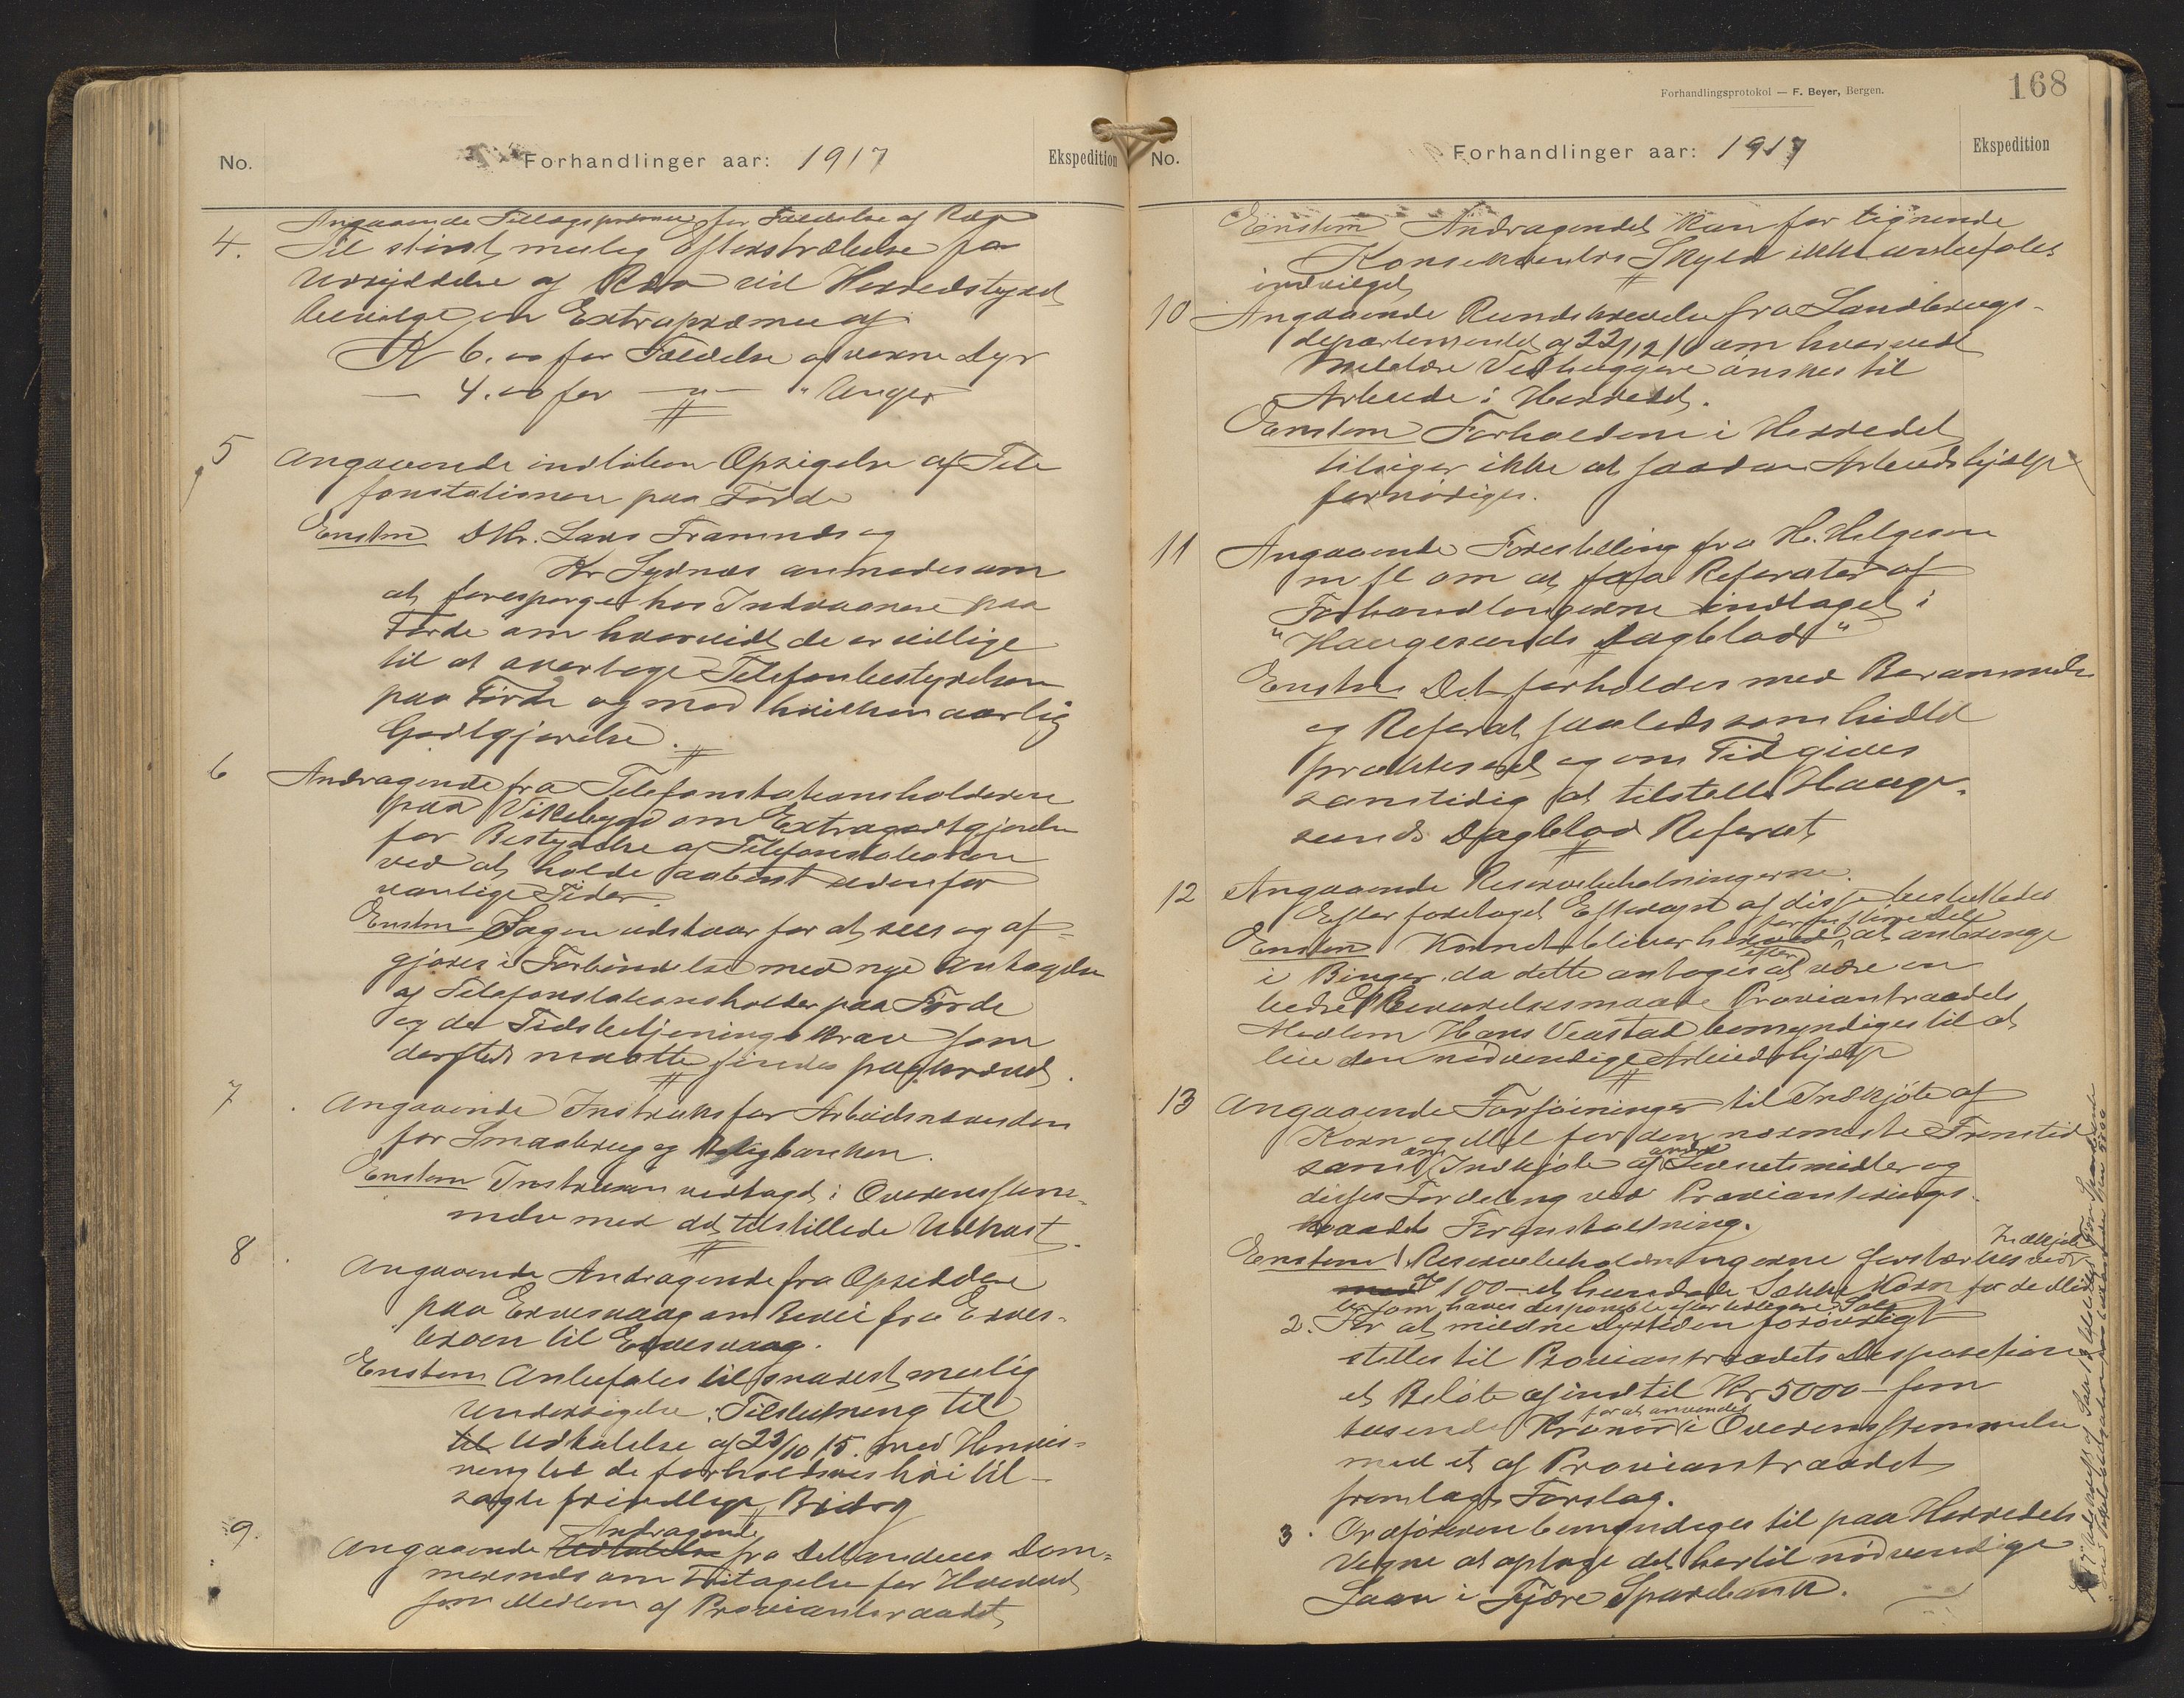 No.
Forhandlinger aar: 1917
Ekspedition
Angaaende Tillægspræmie for Fældelse af Ræv
4. Til størst mulig Efterstræbelse for
Udryddelse af Ræv vil Herredstyret
bevilge en Extrapræmie af
Kr 6.00 for Fældelse af voxne Dyr
— 4.00 for —"— " Unger
5 Angaaende indløben Opsigelse af Tele
fonstationen paa Førde
Enstem DHr. Lars Framnes og
Kr Lydnæs anmodes om
at forespørge hos Indvaanere paa
Førde om hvorvidt de er villige
til at overtage Telefonbestyrelsen
paa Førde og mod hvilken aarlig
Godtgjørelse.
6 Andragende fra Telefonstationsholderen
paa Vikebygd om Extragodtgjørelse
for Bestyrelse af Telefonstationen
ved at holde aabent udenfor
vanlige Tider.
Enstem Sagen udstaar for at sees og af=
gjøres i Forbindelse med nye Antagelse
af Telefonstationsholder paa Førde
og de Tidsbetjenings Krav som
dersteds maatte findes paakrævet.
7 Angaaende Instruks for Arbeidsnævnden
for Smaabrug og Boligbanken.
Enstem Instruxen vedtaget i Overensstem=
melse med det tilstillede Udkast.
8 Angaaende Andragende fra Opsiddere
paa Eruesvaag om Bevei fra Erues=
broen til Eruesvaag.
Enstem Anbefales til snarest mulig
Undersøgelse. Tilslutning til
til Udtalelse af 23/10 15. med Henvis=
ning til de forholdsvis høi til-
sagte frivillige Bidrag
9. Angaaende Udtalelse Andragende fra
Dommersnes om Fritagelse for Hvervet
som Medlem af Proviantraadet
Forhandlingsprotokol — F. Beyer, Bergen.
168
No.
Forhandlinger aar: 1917
Ekspedition
Enstem Andragendet kan for lignende
Konsekventses Skyld ikke anbefales
indvilget
10 Angaaende Rundskrivelse fra Landbrugs-
departementet af 22/12 16 om hvorvidt
militære Vedhuggere ønskes til
Arbeide i Herredet.
Enstem Forholdene i Herredet
tilsiger ikke at saadan Arbeidshjælp
fornødiges.
11 Angaaende Forestilling fra H. Helgesen
m fl om at faa Referater af
Forhandlingerne indtaget i
"Haugesunds Dagblad"
Enstem Det forholdes med Berammelse
og Referat saaleds som hidtil
praktiseret og om Tid gives
samtidig at tilstille Hauge-
sunds Dagblad Referat
12 Angaaende Reservebeholdningerne.
Efter foretaget Eftersyn af disse besluttedes
Enstem Kornet bliver herved for en større Del at anbringe
i Binger da dette antages at være en
bedre Opbevarelsesmaade Proviantraadets
Medlem Hans Veastad bemyndiges til at
leie den nødvendige Arbeidshjælp
13 Angaaende Forføininger til Indkjøb af
Korn og Mel for den nærmeste Fremtid
samt om Indkjøb af andre Livnetsmidler og
disses Fordeling ved Provianterings-
raadets Foranstaltning.
Enstem 1 Reservebeholdningerne forstærkes ved Indkjøb
med af 100 – et hundrede Sække Korn for de Mid
ler som haves disponible efter tidligere Salg
2. For at mildne Dyrtiden forøvrigt
stilles til Proviantraadets Disposition
et Beløb af indtil Kr 5000 – fem
tusend Kroner for at anvendes i Overensstemmelse
med et af Proviantraadet
fremlagt Forslag.
3. Ordføreren bemyndiges til paa Herredets
Vegne at optage det hertil nødvendige
Laan i Fjære Sparebank.